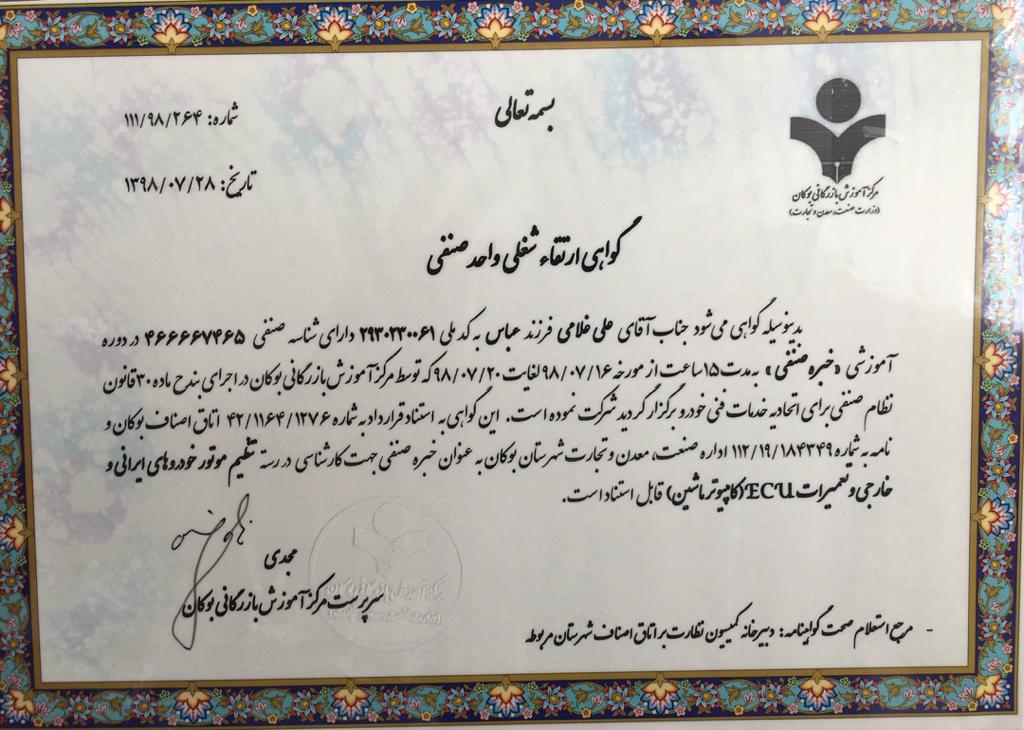 بسمه تعالی
شماره: ۱۱۱/۹۸/۲۶۴
تاریخ: ۱۳۹۸/۰۷/۲۸
مرکز آموزش بازرگانی بوکان
(وزارت صنعت، معدن و تجارت)
گواهی ارتقاء شغلی واحد صنفی
بدینوسیله گواهی می شود جناب آقای علی غلامی فرزند عباس به کد ملی ۲۹۳۰۲۳۰۰۶۱ دارای شناسه صنفی ۴۶۶۶۶۷۴۶۵ در دوره
آموزشی «خبره صنفی» به مدت ۱۵ ساعت از مورخه ۹۸/۰۷/۱۶ لغایت ۹۸/۰۷/۲۰ که توسط مرکز آموزش بازرگانی بوکان در اجرای بند ح ماده ۳۰ قانون
نظام صنفی برای اتحادیه خدمات فنی خودرو برگزار گردید شرکت نموده است. این گواهی به استناد قرارداد به شماره ۴۲/۱۱۶۴/۱۲۷۶ اتاق اصناف بوکان و
نامه به شماره ۱۱۲/۱۹/۱۸۴۳۴۹ اداره صنعت، معدن و تجارت شهرستان بوکان به عنوان خبره صنفی جهت کارشناسی در رسته تنظیم موتور خودروهای ایرانی و
خارجی و تعمیرات ECU (کامپیوتر ماشین) قابل استناد است.
مجدی
سرپرست مرکز آموزش بازرگانی بوکان
- مرجع استعلام صحت گواهینامه: دبیرخانه کمیسیون نظارت بر اتاق اصناف شهرستان مربوطه